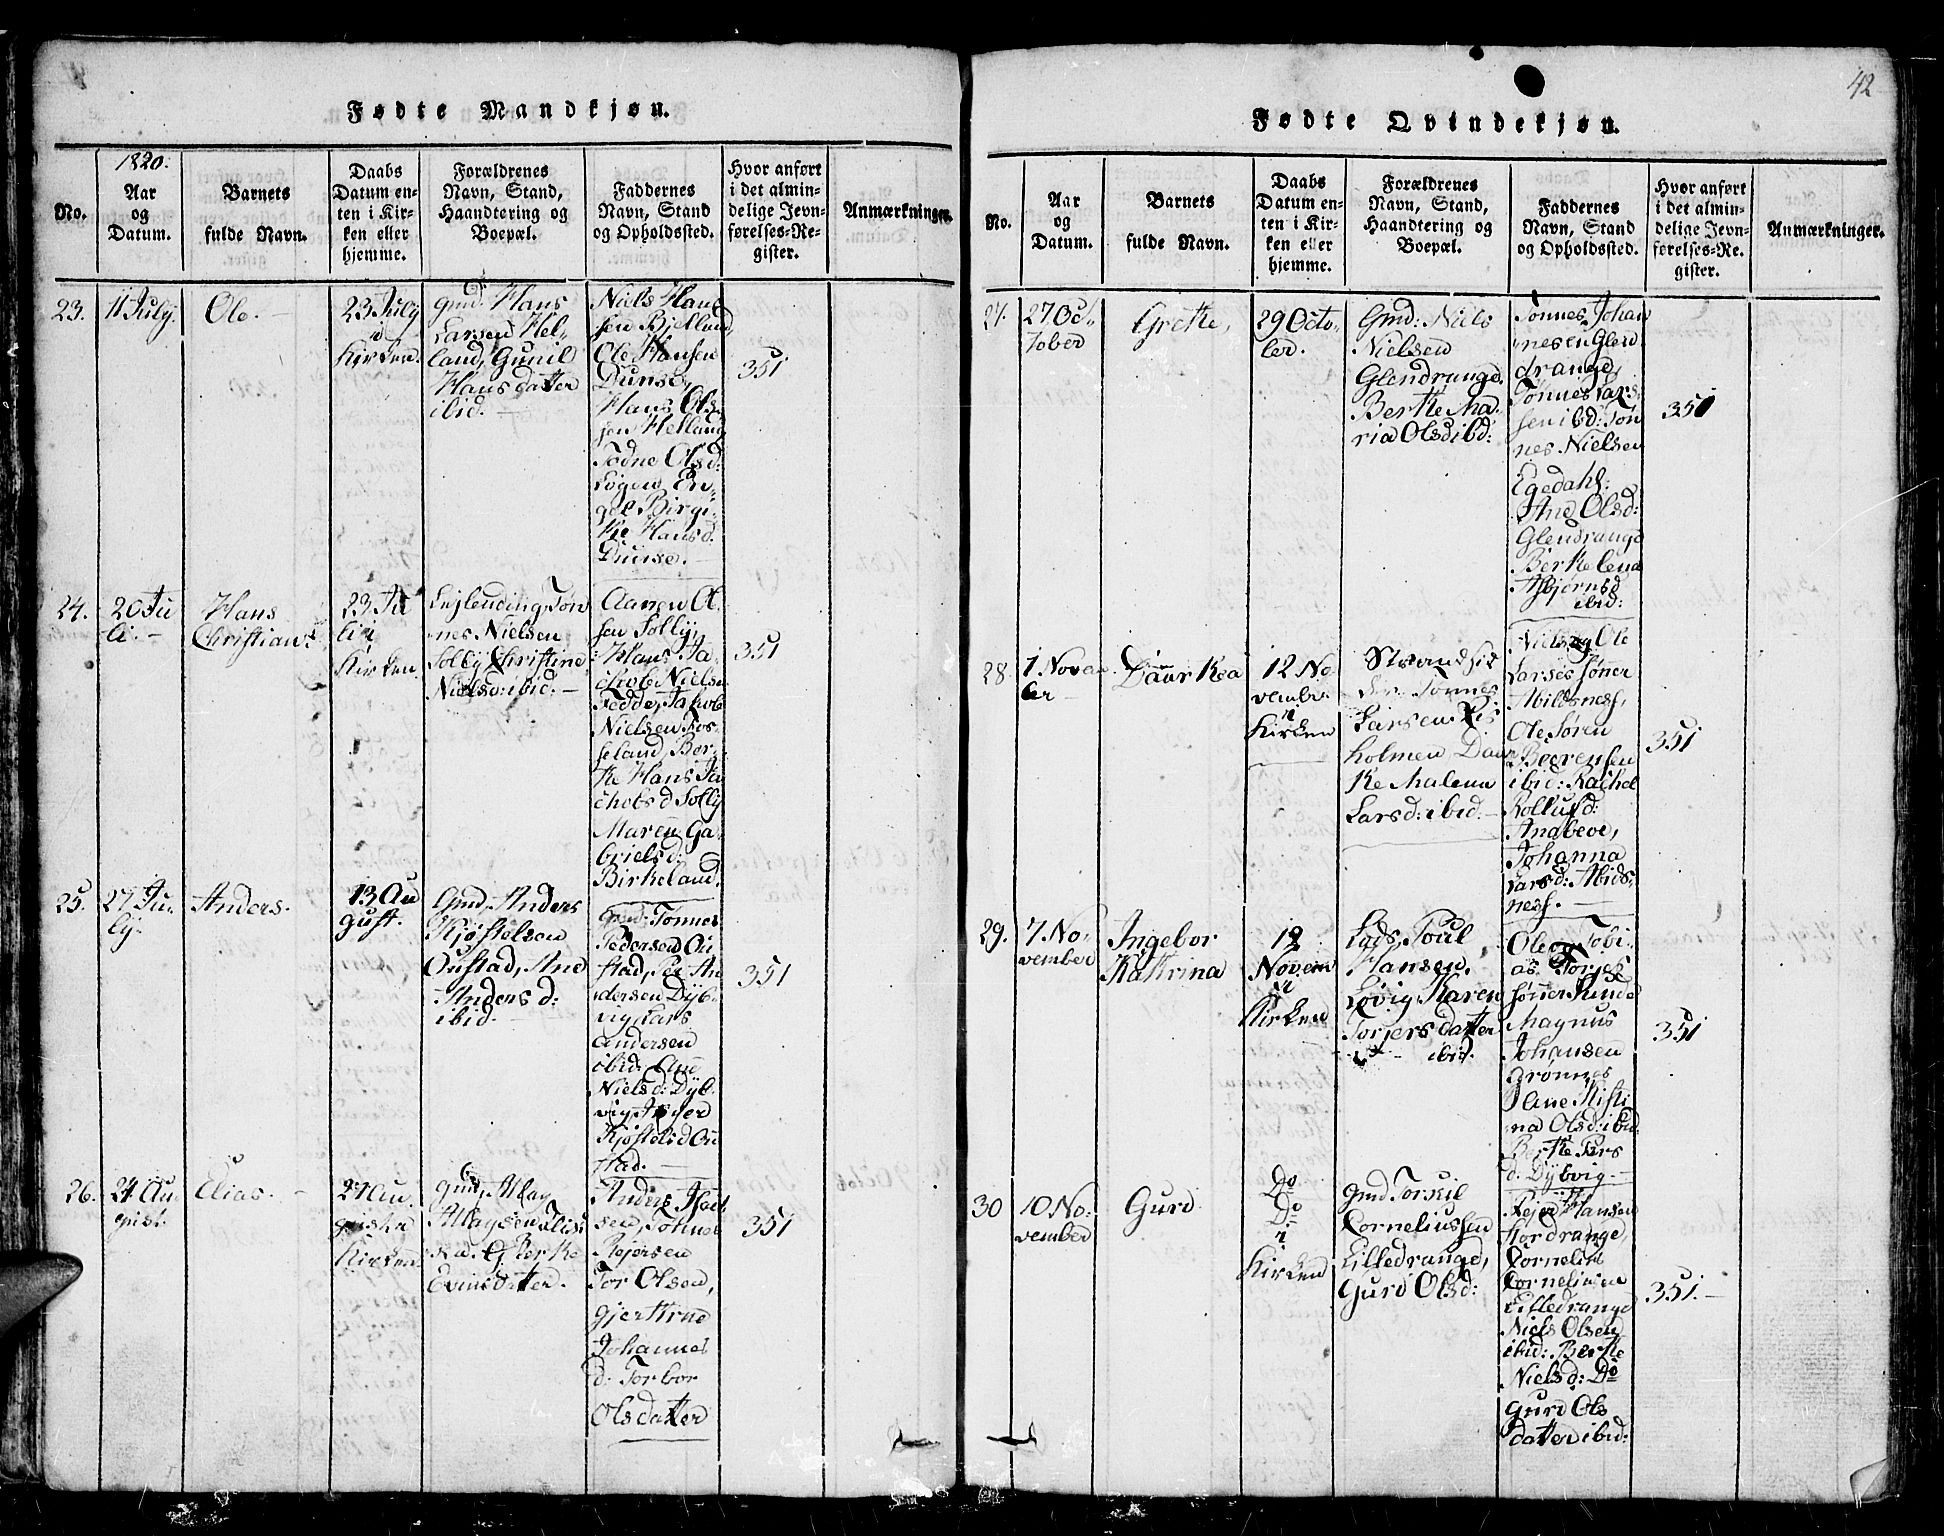 42
Fødte Mandkjøn.
1820.
No.
Aar
og
Datum.
Barnets
fulde Navn.
Daabs
Datum en-
ten i Kir-
ken eller
hjemme.
Forældrenes
Navn, Stand,
Haandtering og
Boepæl.
Faddernes
Navn, Stand
og Opholdssted.
Hvor anført
i det almin-
delige Jevn-
førelses-Re-
gister.
Anmærkninger.
23.
11 July.
Ole.
23 July
i
Kirken.
gmd: Hans
Larsen Hel-
land, Gunil
Hansdatter
ibid.
Niels Han
sen Bjelland
Ole Hansen
Dunse,
Hans Ols
sen Helland
Todne Olsd:
Løgen En-
gel Birgi-
te Hansd:
Dunse.
351
24.
20 Ju
li.
Hans
Christian
23 Ju
li i
Kirken
Lejlending Tøn
nes Nielsen
Solly Christine
Nielsd: ibid:
Aanen Ol
sen Solly,
Hans Ja-
chob Nielsen
Fedde, Jakob
Nielsen Fos-
seland Ber-
te Hans Ja
chobs d Solly
Maren Ga-
brielsd:
Birkeland.
351
25.
27 Ju-
ly.
Anders.
13 Au
gust.
Gmd: Anders
Kjøstelsen
Oustad, Ane
Anders d:
ibid.
Gmd: Tønnes
Pedersen Ou
stad, Per An
dersen Dyb-
vig, Lars
Andersen
ibid: Ane
Nielsd: Dyb-
vig, Inger
Kjøstelsd Ou
stad.
351
26.
24 Au
gust.
Elias.
27 Au
gust i
Kirken
gmd: Aay
Aaysen
Berte
Evinsdatter.
Anders
sen, Tønnes
Rejersen
Tor Olsen,
Gjertrud
Johannes
d: Torbor
Olsdatter
351
Fødte Qvindekjøn.
No.
Aar
og
Datum.
Barnets
fulde Navn.
Daabs
Datum en-
ten i Kir-
ken eller
hjemme.
Forældrenes
Navn, Stand,
Haandtering og
Boepæl.
Faddernes
Navn, Stand
og Opholdssted.
Hvor anført
i det almin-
delige Jevn-
førelses-Re-
gister.
Anmærkninger.
27.
27 Oc-
tober
Grete,
29 Octo-
ber.
Gmd: Niels
Nielsen
Glendrange.
Berte Ma-
ria Olsd ibd:
Tønnes Johan
nesen Glen
drange,
Tønnes Lars-
sen ibd: Tøn
nes Nielsen
Egedahl:
Ane Olsd:
Glendrange
Berte Lena
Asbjørnsd
ibid:
351
28.
1 Novem
ber
Daarthea
12 No
vember
i
Kirken
Strandsid
der Tønnes
Larsen Ris
holmen Daar
the Malena
Larsd: ibid.
Niels og Ole
Larses sønner
Abildsnes,
Ole Søren
Beerensen
ibid: Rachel
Rollufsd:
Anabeve,
Johanna
Larsd: Abids-
nes.
351
29.
7 No-
vember
Ingebor
Kathrina
12
Novem
i
Kirken
Lods, Poul
Hansen,
Løvig Karen
Torjersdatter
ibid.
Ole og Tobi-
as Torjes
sønner Runde
Magnus
Johansen
Grønnes
Jane Kisti
na Olsd: ibd
Berte Pers
d. Dybvig
351
30
10 No-
vember
Gurd
Do
Do
i
Kirken
gmd Torkil
Corneliussen
Lilledrange,
Gurd Olsd:
Rejer Hansen
Hordrange,
Cornelius
Cornelissen
Lilledrange
Niels Olsen
ibid: Berte
Nielsd: Do
Gurd Ols
datter ibid:
351.